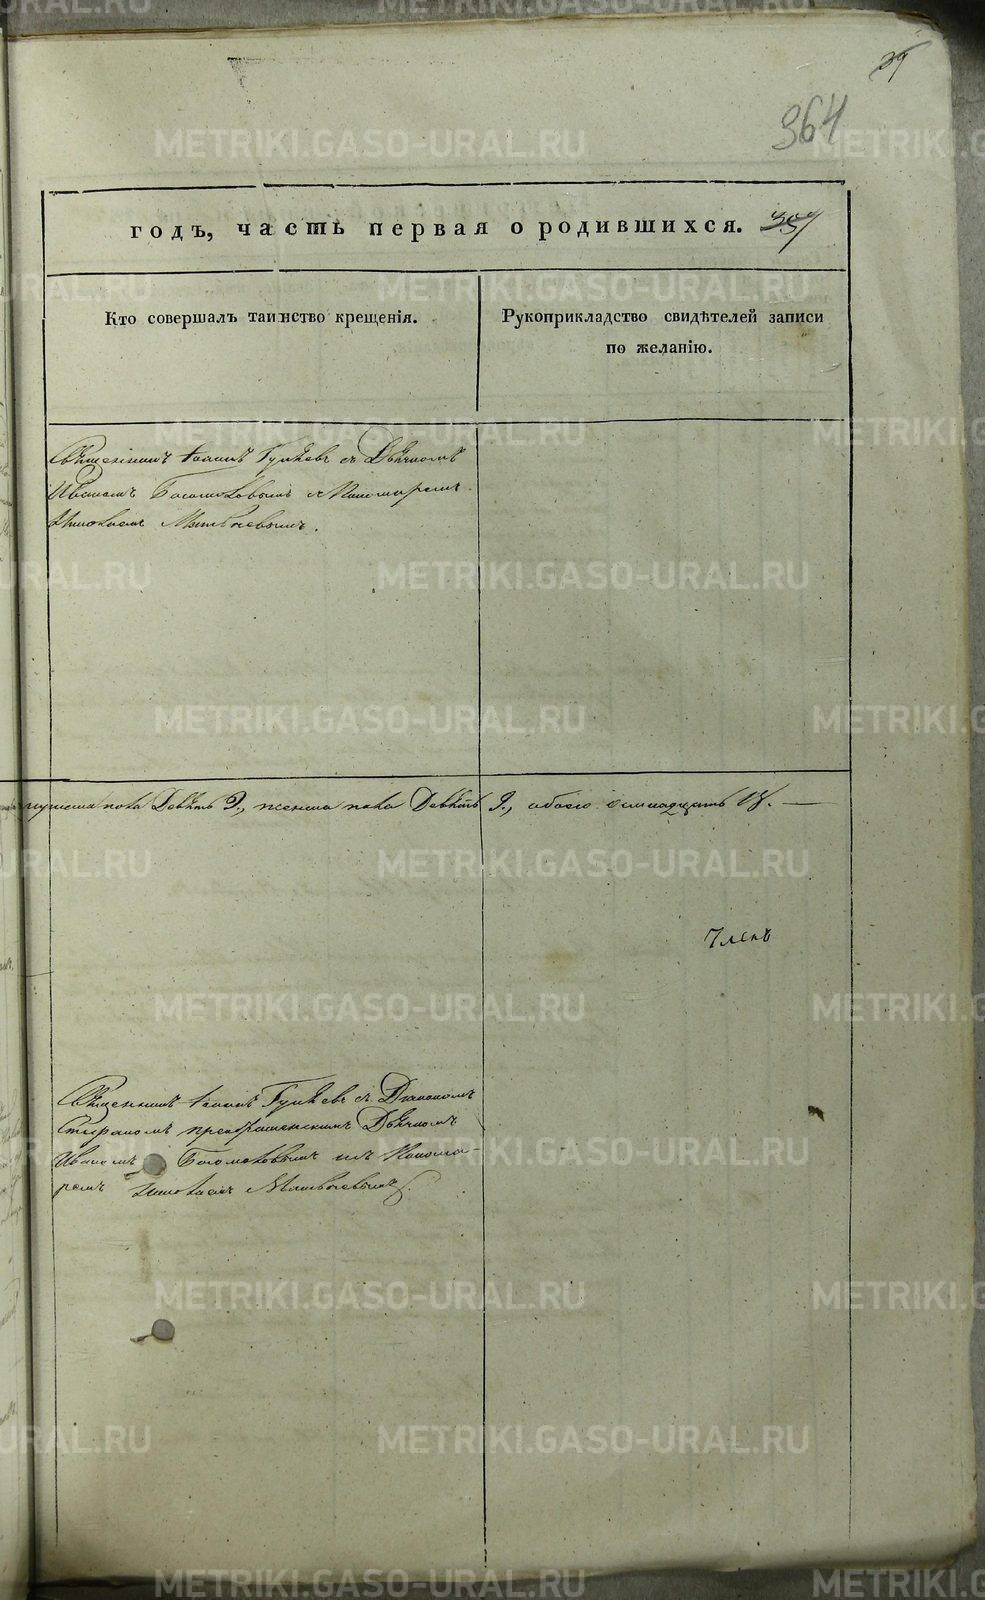 39
364
годъ, часть первая о родившихся. 357
Кто совершалъ таинство крещенія.
Рукоприкладство свидѣтелей записи
по желанію.
Священникъ Іоаннъ съ Дьячкомъ
Иваномъ Богомоловымъ и Пономаремъ
Николаемъ Матвѣевымъ.
мужеска пола Девять 9., женска пола Девять 9., обоего осмнадцать 18. —
Членъ
Священникъ Іоаннъ съ Діакономъ
Стефаномъ Преображенскимъ Дьячкомъ
Иваномъ Богомоловымъ и Понома-
ремъ Николаемъ Матвѣевымъ.
METRIKI.GASO-URAL.RU